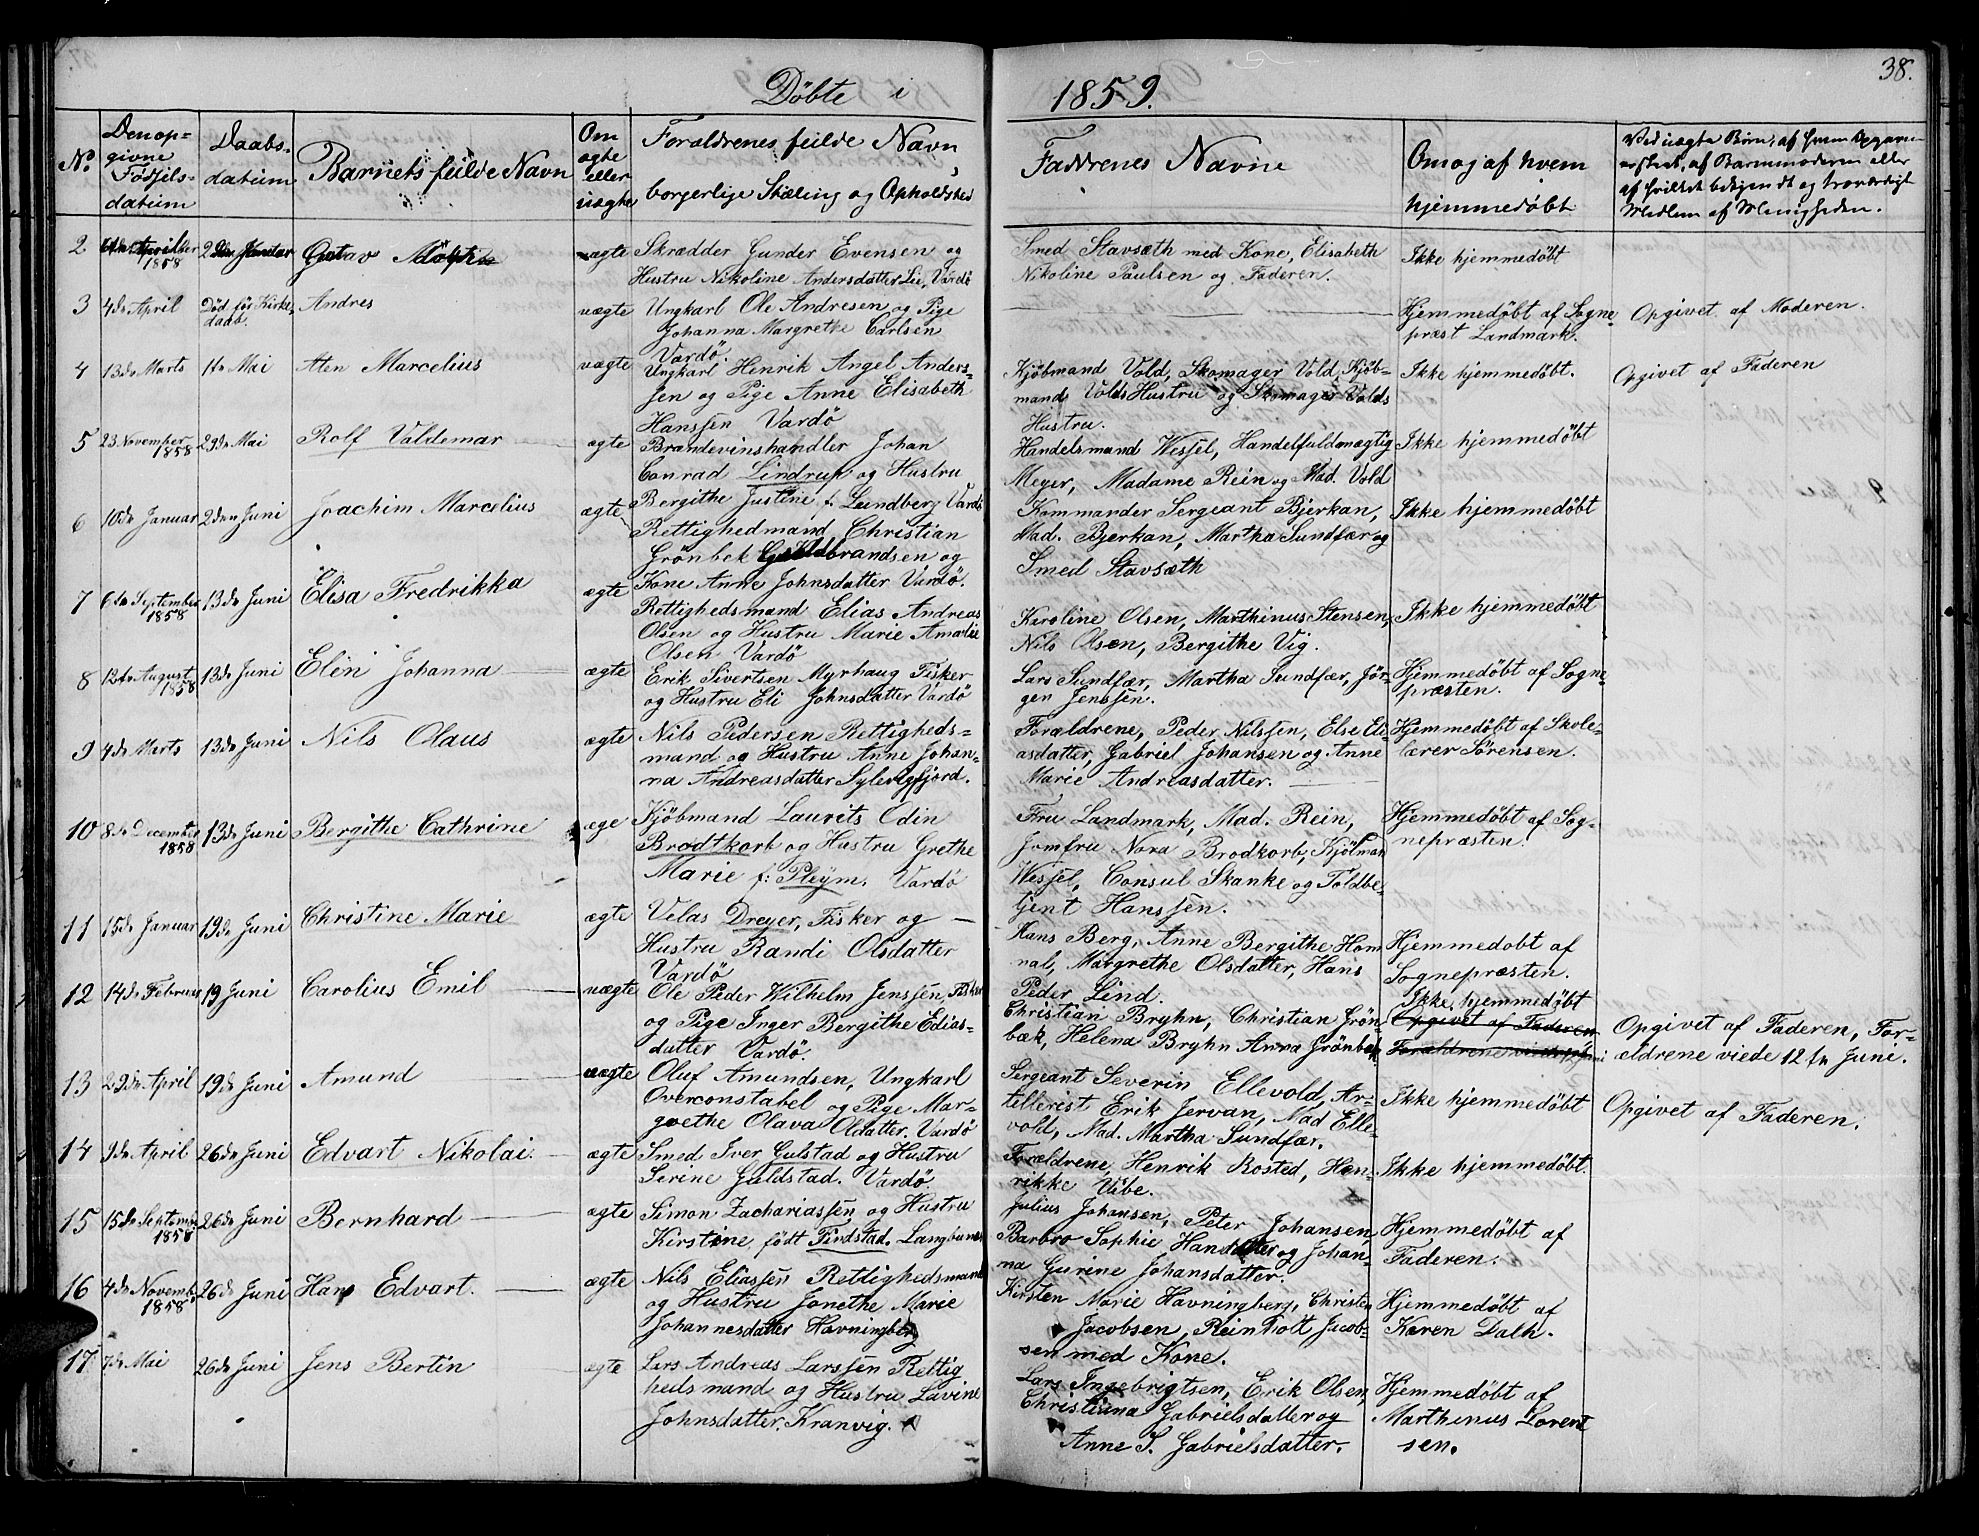 38.
Döbte i 1859.
No.
Den op=
givne
Födsels-
datum
Daabs-
datum
Barnets fulde Navn
Om
ægte
eller
uægte
Forældrenes fulde Navn,
borgerlige Stæling og Opholdsted
Faddrenes Navne
Om og af hvem
hjemmedöbt
Ved uægte Börn, af hvem Opgaven
er skeet, af Barnmoderen eller
af hvilket bekjendt og troværdigt
Medlem af Menigheden.
2
1858
Gustav
ægte
Skrædder Gunder Evensen og
Hustru Nikoline Andersdatter Lie, Vardö
Smed Stavsæth med Kone, Elisabeth
Nikoline Paulsen og Faderen.
Ikke hjemmedöbt
3
4de April
Död för Kirke-
daab.
Andres
uægte
Ungkarl Ole Andresen og Pige
Johanna Margrethe Carlsen
Vardö.
Hjemmedöbt af Sogne
præst Landmark.
Opgivet af Moderen.
4
13de Marts
1te Mai
Aten Marcelius
uægte
Ungkarl Henrik Angel Anders-
sen og Pige Anne Elisabeth
Hanssen Vardö
Kjöbmand Vold, Skomager Vold, Kjöb-
mands Volds Hustru og Skomager Volds
Hustru.
Ikke hjemmedöbt.
Opgivet af Faderen
5
23 November
1858
29de Mai
Rolf Valdemar
ægte
Brændevinshandler Johan
Conrad Lindrup og Hustru
Bergithe Justine f. Lundberg Vardö
Handelsmand Wessel, Handelfuldmægtig
Meyer, Madame Rein og Mad. Vold
Ikke hjemmedöbt
6
10de Januar
2den Juni
Joachim Marcelius
ægte
Rettighedmand Christian
Grönbek Guldbrandsen og
Kone Anne Johnsdatter Vardö.
Kommander Sergeant Bjerkan,
Mad. Bjerkan, Martha Sundfær og
Smed Stavsæth
Ikke hjemmedöbt
7
6te September
1858
13de Juni
Elisa Fredrikka
ægte
Rettighedsmand Elias Andreas
Olsen og Hustru Marie Amalie
Olsen Vardö
Kiroline Olsen, Marthinus Stensen,
Nils Olsen, Bergithe Vig.
Ikke hjemmedöbt
8
12te August
1858
13de Juni
Elen Johanna
ægte
Erik Sivertsen Myrhaug Fisker
og Hustru Eli Johnsdatter Vardö
Lars Sundfær, Martha Sundfær, Jör-
gen Jenssen.
Hjemmedöbt af Sogne-
præsten.
9
4de Marts
13de Juni
Nils Olaus
ægte
Nils Pedersen Rettigheds=
mand og Hustru Anne Johan-
na Andreasdatter Syltevigfjord.
Forældrene, Peder Nilssen, Else Eli-
asdatter, Gabriel Johansen og Anne
Marie Andreasdatter.
Hjemmedöbt af Skole-
lærer Sörensen.
10
8de December
1858
13de Juni
Bergithe Cathrine
æge
Kjöbmand Laurits Odin
Brodtkorb og Hustru Grethe
Marie f: Pleym. Vardö
Fru Landmark, Mad. Rein,
Jomfru Nora Brodkorb, Kjölman
Wessel, Consul Skanke og Toldbe-
tjent Hanssen.
Hjemmedöbt af Sog-
nepræsten.
11
15de Januar
19de Juni
Christine Marie
ægte
Velas Dreyer, Fisker og
Hustru Randi Olsdatter
Vardö
Hans Berg, Anne Bergithe Hom
nal, Margrethe Olsdatter, Hans
Peder Lind.
Hjemmedöbt af
Sognepræsten.
12
14de Februar
19 Juni
Carolius Emil
uægte
Ole Peder Wilhelm Jenssen, Fisker
og Pige Inger Bergithe Edias-
datter Vardö.
Christian Bryhn, Christian Grön-
bæk, Helena Bryhn Anna Grönbek
Ikke hjemmedöbt
Opgivet af Faderen
Opgivet af Faderen, For-
ældrene viede 12te Juni.
13
29de April
19de Juni
Amund
uægte
Oluf Amundsen, Ungkarl
Overconstabel og Pige Mar-
grethe Olava Oldatter. Vardö
Sergeant Severin Ellevold, Ar-
tellerist Erik Jervan, Mad Elle-
vold, Mad. Martha Sundfær.
Ikke hjemmedöbt
Opgivet af Faderen.
14
9de April
26de Juni
Edvart Nikolai.
ægte
Smed Iver Gulstad og Hustru
Serine Guldstad. Vardö.
Forældrene, Henrik Rosted, Hen-
rikke Vibe.
Ikke hjemmedöbt.
15
15de Septemb
1858
26de Juni
Bernhard
ægte
Simon Zachariassen og Hustru
Kirstine, födt Findstad. Langbunes
Julius Johansen, Peter Johansen,
Barbro Sophie Hansdatter og Johan-
na Gurine Johansdatter.
Hjemmedöbt af
Faderen.
16
4de Novemb
1858
26de Juni
Hans Edvart.
ægte
Nils Eliassen Rettighedsmand
og Hustru Jonethe Marie
Johannesdatter Havningberg
Kirsten Marie Havningberg, Christen
Jacobsen, Reinholt Jacob-
sen med Kone.
Hjemmedöbt af
Karen Dalh.
17
7de Mai
26de Juni
Jens Bertin
ægte
Lars Andreas Larssen Rettig
hedsmand og Hustru Lavine
Johnsdatter, Kranvig.
Lars Ingebrigtsen, Erik Olsen,
Christiana Gabrielsdatter og
Anne S. Gabrielsdatter.
Hjemmedöbt af
Marthinus Lorent
sen.